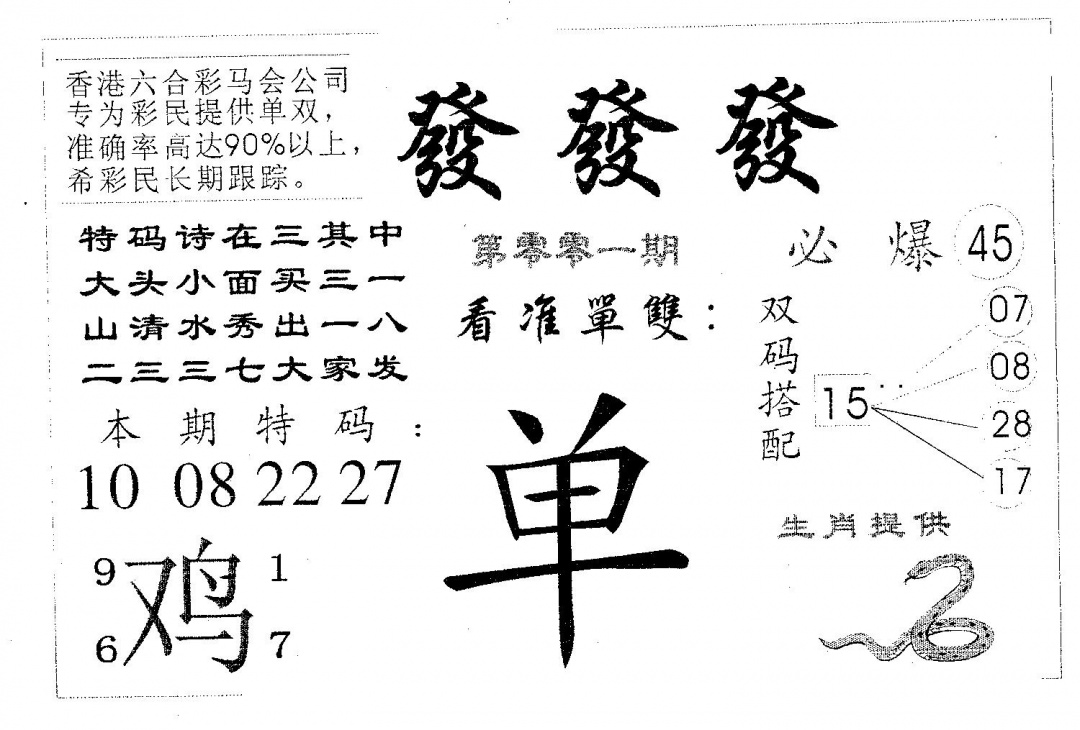 香港六合彩马会公司
专为彩民提供单双，
准确率高达90%以上，
希彩民长期跟踪。
發 發 發
特码诗在三其中
大头小面买三一
山清水秀出一八
二三三七大家发
本期特码：
10 08 22 27
9 1
鸡
6 7
第零零一期
看准單雙：
单
必爆 45
双码搭配
15
07
08
28
17
生肖提供